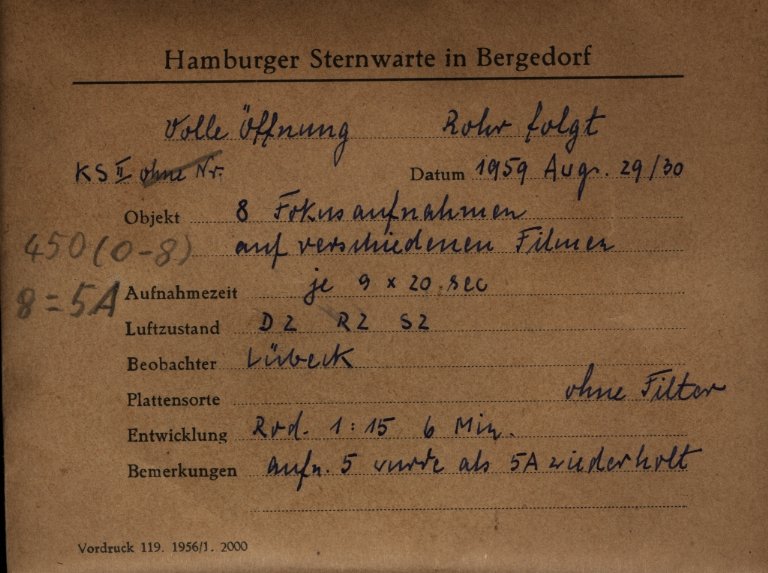 Hamburger Sternwarte in Bergedorf
Volle Öffnung Rohr folgt
KS II ohne Nr. Datum 1959 Aug. 29/30
Objekt 8 Fokusaufnahmen
450 (0-8) auf verschiedenen Filmen
8 = 5A Aufnahmezeit je 9 x 20 sec
Luftzustand D2 R2 S2
Beobachter Lübeck
Plattensorte ohne Filter
Entwicklung Rod. 1:15 6 Min.
Bemerkungen Aufn. 5 wurde als 5A wiederholt
Vordruck 119. 1956/1. 2000